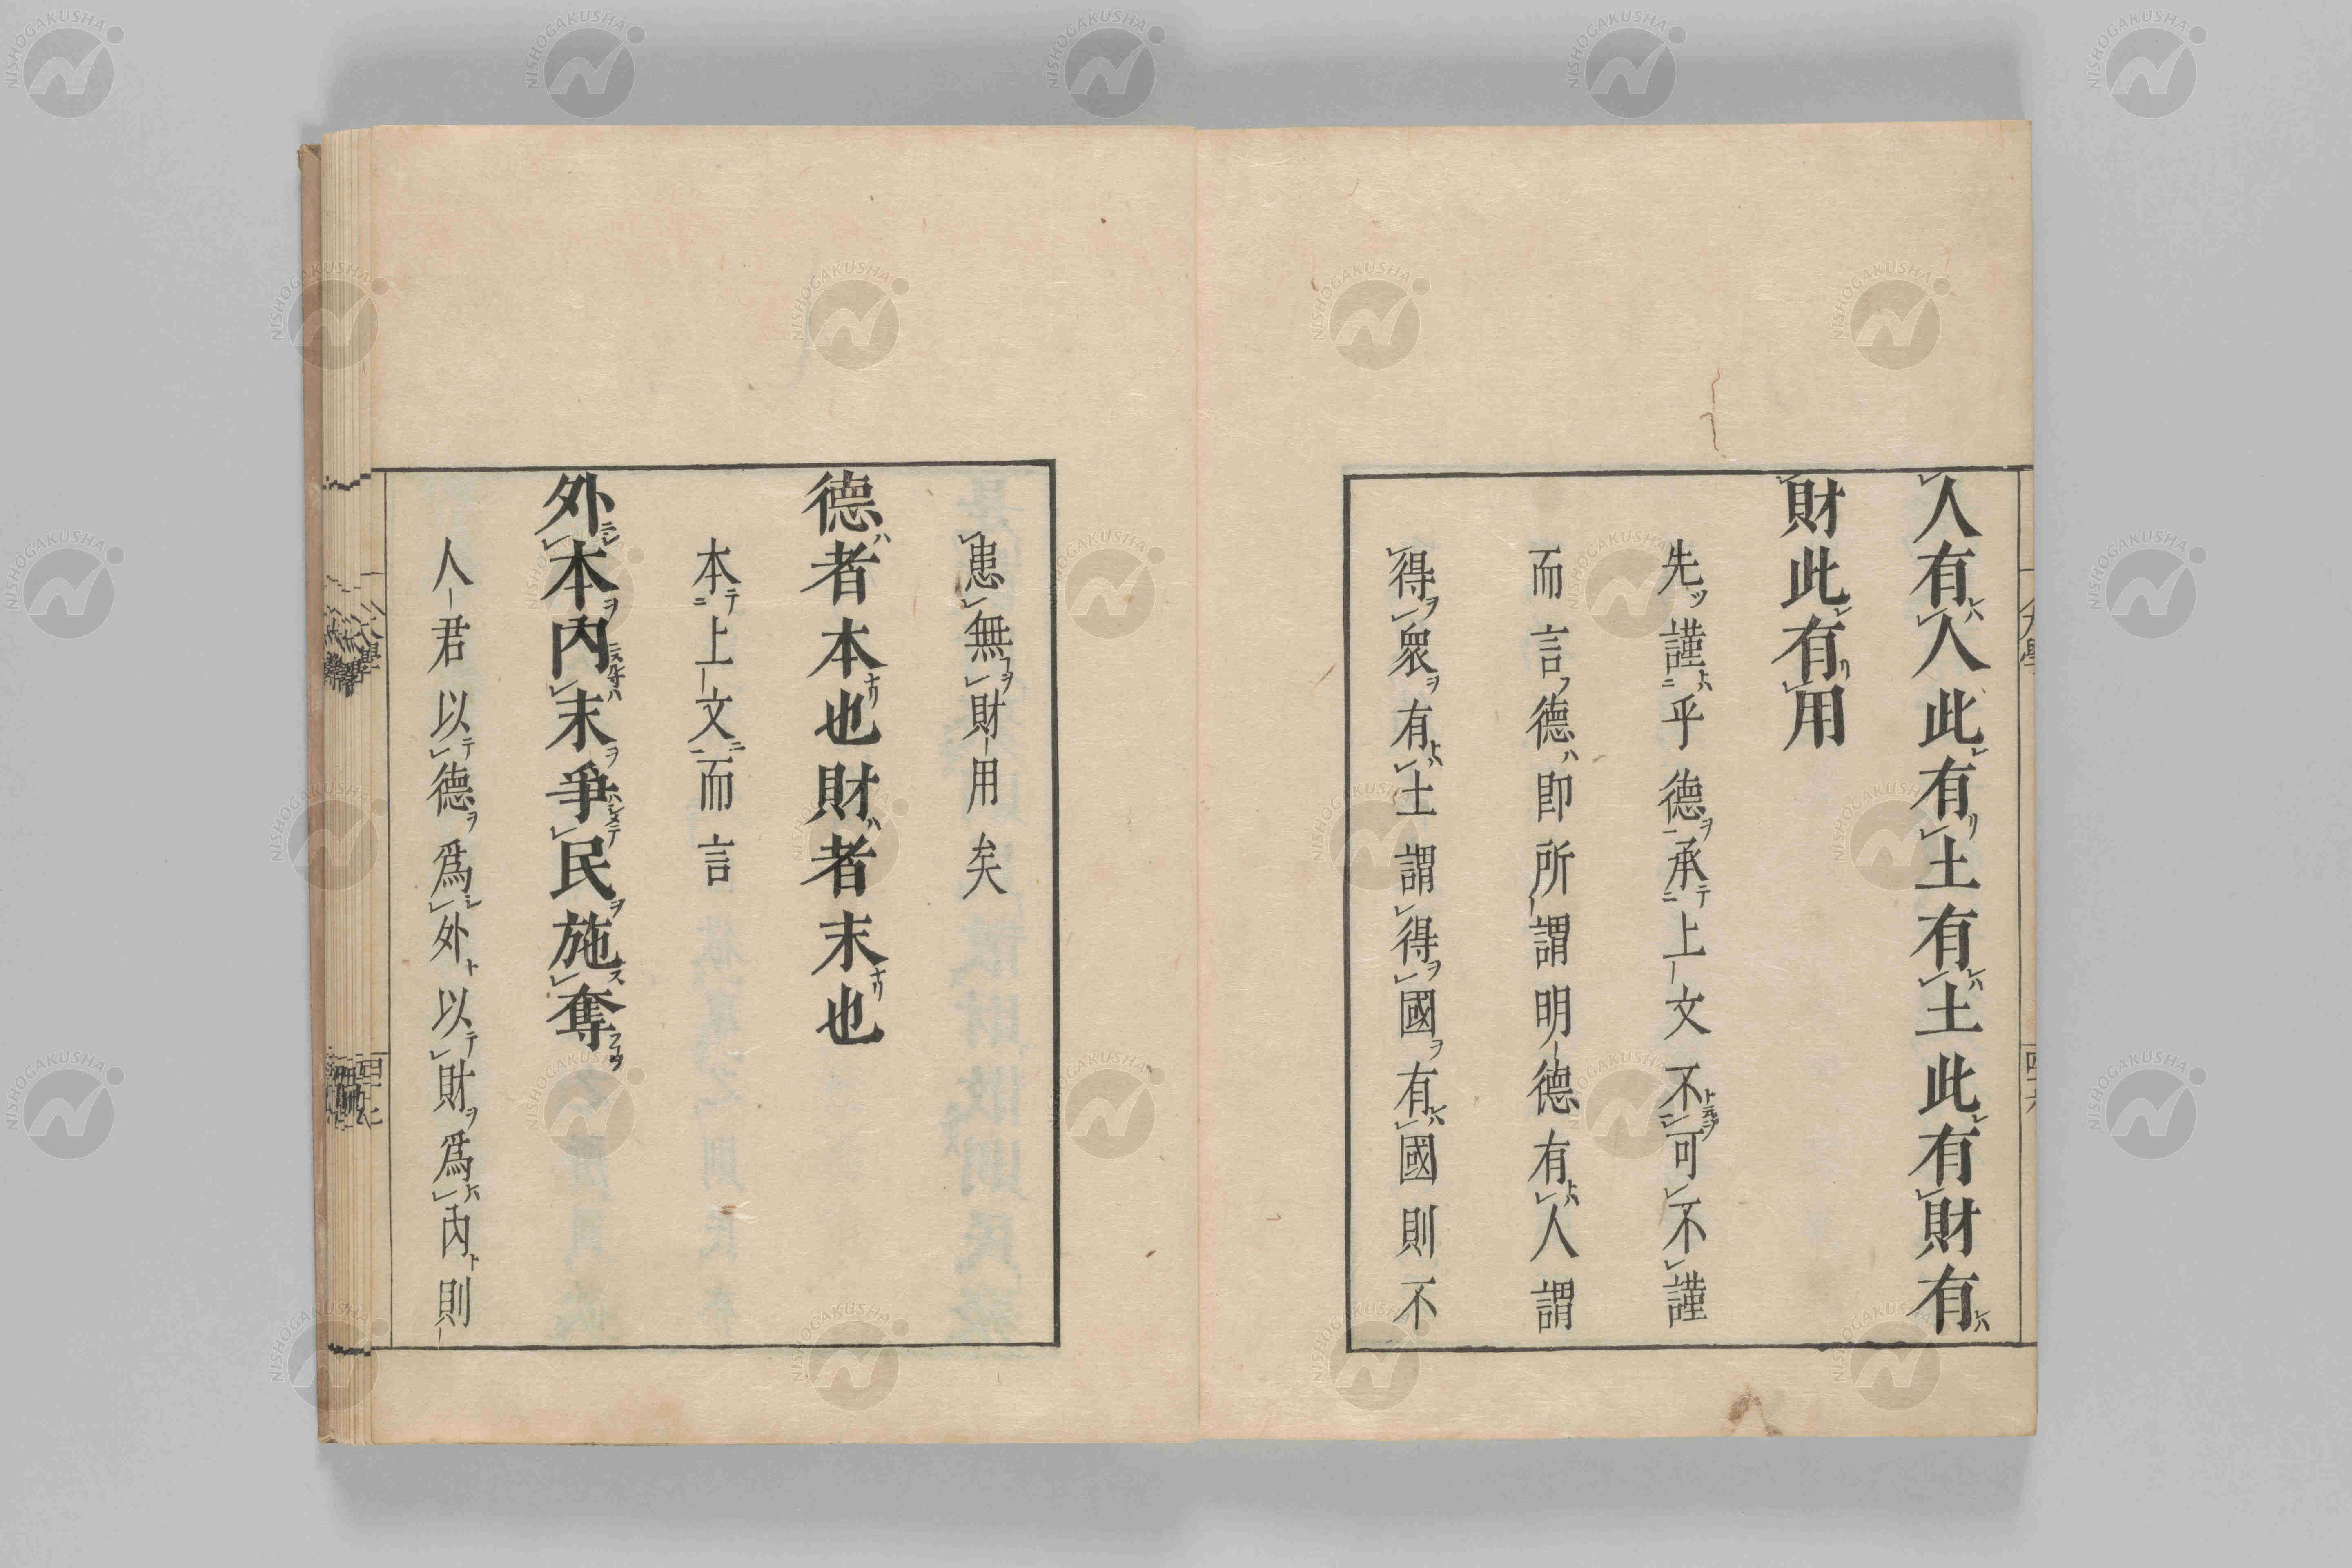 人有人此有土有土此有財有
財此有用
先謹乎德承上文不可不謹
而言德即所謂明德有人謂
得衆有土謂得國有國則不
患無財用矣
德者本也財者末也
本上文而言
外本內末爭民施奪
人君以德爲外以財爲內則
大學
NISHOGAKUSHA